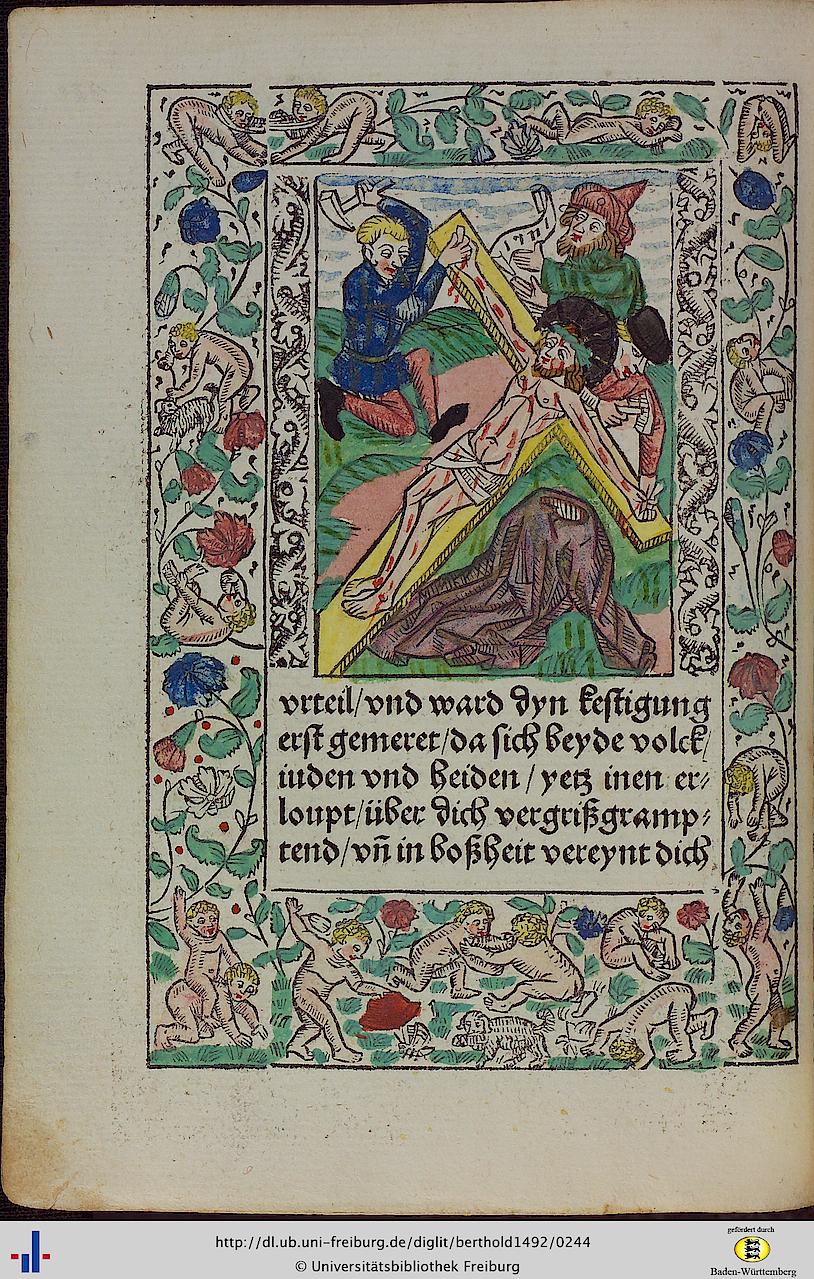 vrteil/vnd ward dyn kestigung
erst gemeret/da sich beyde volck/
iuden vnd heiden/yetz inen er⸗
loupt/über dich vergrißgramp⸗
tend/vñ in boßheit vereynt dich
http://dl.ub.uni-freiburg.de/diglit/berthold1492/0244
© Universitätsbibliothek Freiburg
gefördert durch
Baden-Württemberg